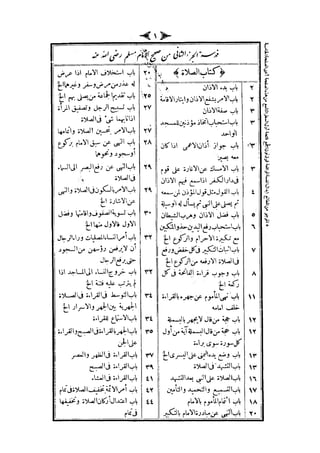 ١
فهرسة الجزء الثانى من صحيح الامام مسلم رضى الله عنه
﴿ كتاب الصلاة ﴾
٢ باب بدء الاذان
٢ باب الامر بشفع الاذان وايتار الاقامة
٣ باب استحباب اتخاذ مؤذنين للمسجد
الواحد
٣ باب جواز أذان الاعمى اذا كان
معه بصير
٣ باب الامساك عن الاغارة على قوم
فى دار الكفر اذا سمع فيهم الاذان
٤ باب القول مثل قول المؤذن لمن سمعه
ثم يصلى على النبى ثم يسأل له الوسيلة
٥ باب فضل الاذان وهرب الشيطان
٦ باب استحباب رفع اليدين حذو المنكبين
مع تكبيرة الاحرام والركوع الخ
٧ باب اثبات التكبير فى كل خفض ورفع
فى الصلاة الا رفعه من الركوع الخ
٨ باب وجوب قراءة الفاتحة فى كل
ركعة الخ
١١ باب نهى المأموم عن جهره بالقراءة
خلف امامه
١٢ باب حجة من قال لا يجهر بالبسملة
١٢ باب حجة من قال البسملة آية من أول
كل سورة سوى براءة
١٣ باب وضع يده اليمنى على اليسرى الخ
١٣ باب التشهد فى الصلاة
١٦ باب الصلاة على النبى بعد التشهد
١٧ باب التسميع والتحميد والتأمين
١٨ باب ائتمام المأموم بالامام
٢٠ باب النهى عن مبادرة الامام بالتكبير
٢٠ باب استخلاف الامام اذا عرض
له عذر من مرض وسفر وغيرهما الخ
٢٥ باب تقديم الجماعة من يصلى بهم الخ
٢٧ باب تسبيح الرجل وتصفيق المرأة
اذا نابهما شئ فى الصلاة
٢٧ باب الامر بتحسين الصلاة واتمامها
٢٨ باب النهى عن سبق الامام بركوع
أو سجود ونحوهما
٢٩ باب النهى عن رفع البصر الى السماء
فى الصلاة
٢٩ باب الامر بالسكون فى الصلاة والنهى
عن الاشارة الخ
٣٠ باب تسوية الصفوف واقامتها وفضل
الاول فالاول منها الخ
٣٢ باب أمر النساء المصليات وراء الرجال
أن لا يرفعن رؤسهن من السجود
حتى يرفع الرجال
٣٢ باب خروج النساء الى المساجد اذا
لم يترتب عليه فتنة الخ
٣٤ باب التوسط فى القراءة فى الصلاة
الجهرية بين الجهر والاسرار الخ
٣٤ باب الاستماع للقراءة
٣٥ باب الجهر بالقراءة فى الصبح والقراءة
على الجن
٣٧ باب القراءة فى الظهر والعصر
٣٩ باب القراءة فى الصبح
٤١ باب القراءة فى العشاء
٤٢ باب أمر الائمة بتخفيف الصلاة فى تمام
٤٤ باب اعتدال أركان الصلاة وتخفيفها
فى تمام